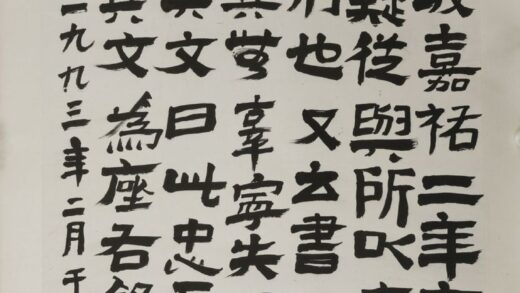 嘉祐二年
疑從與所以
刑也又云書
其無辜寧失
文曰此忠
其文為座右銘
一九九三年二月于